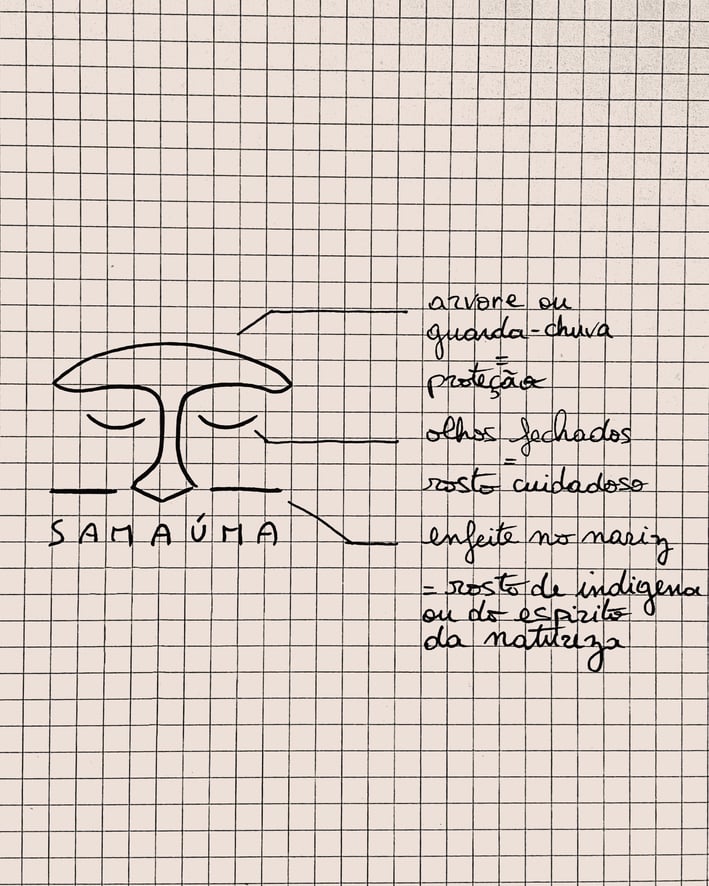 SAMAÚMA
arvore ou
guarda-chuva
=
proteção
olhos fechados
=
rosto cuidadoso
enfeite no nariz
= rosto de indigena
ou do espirito
da natureza